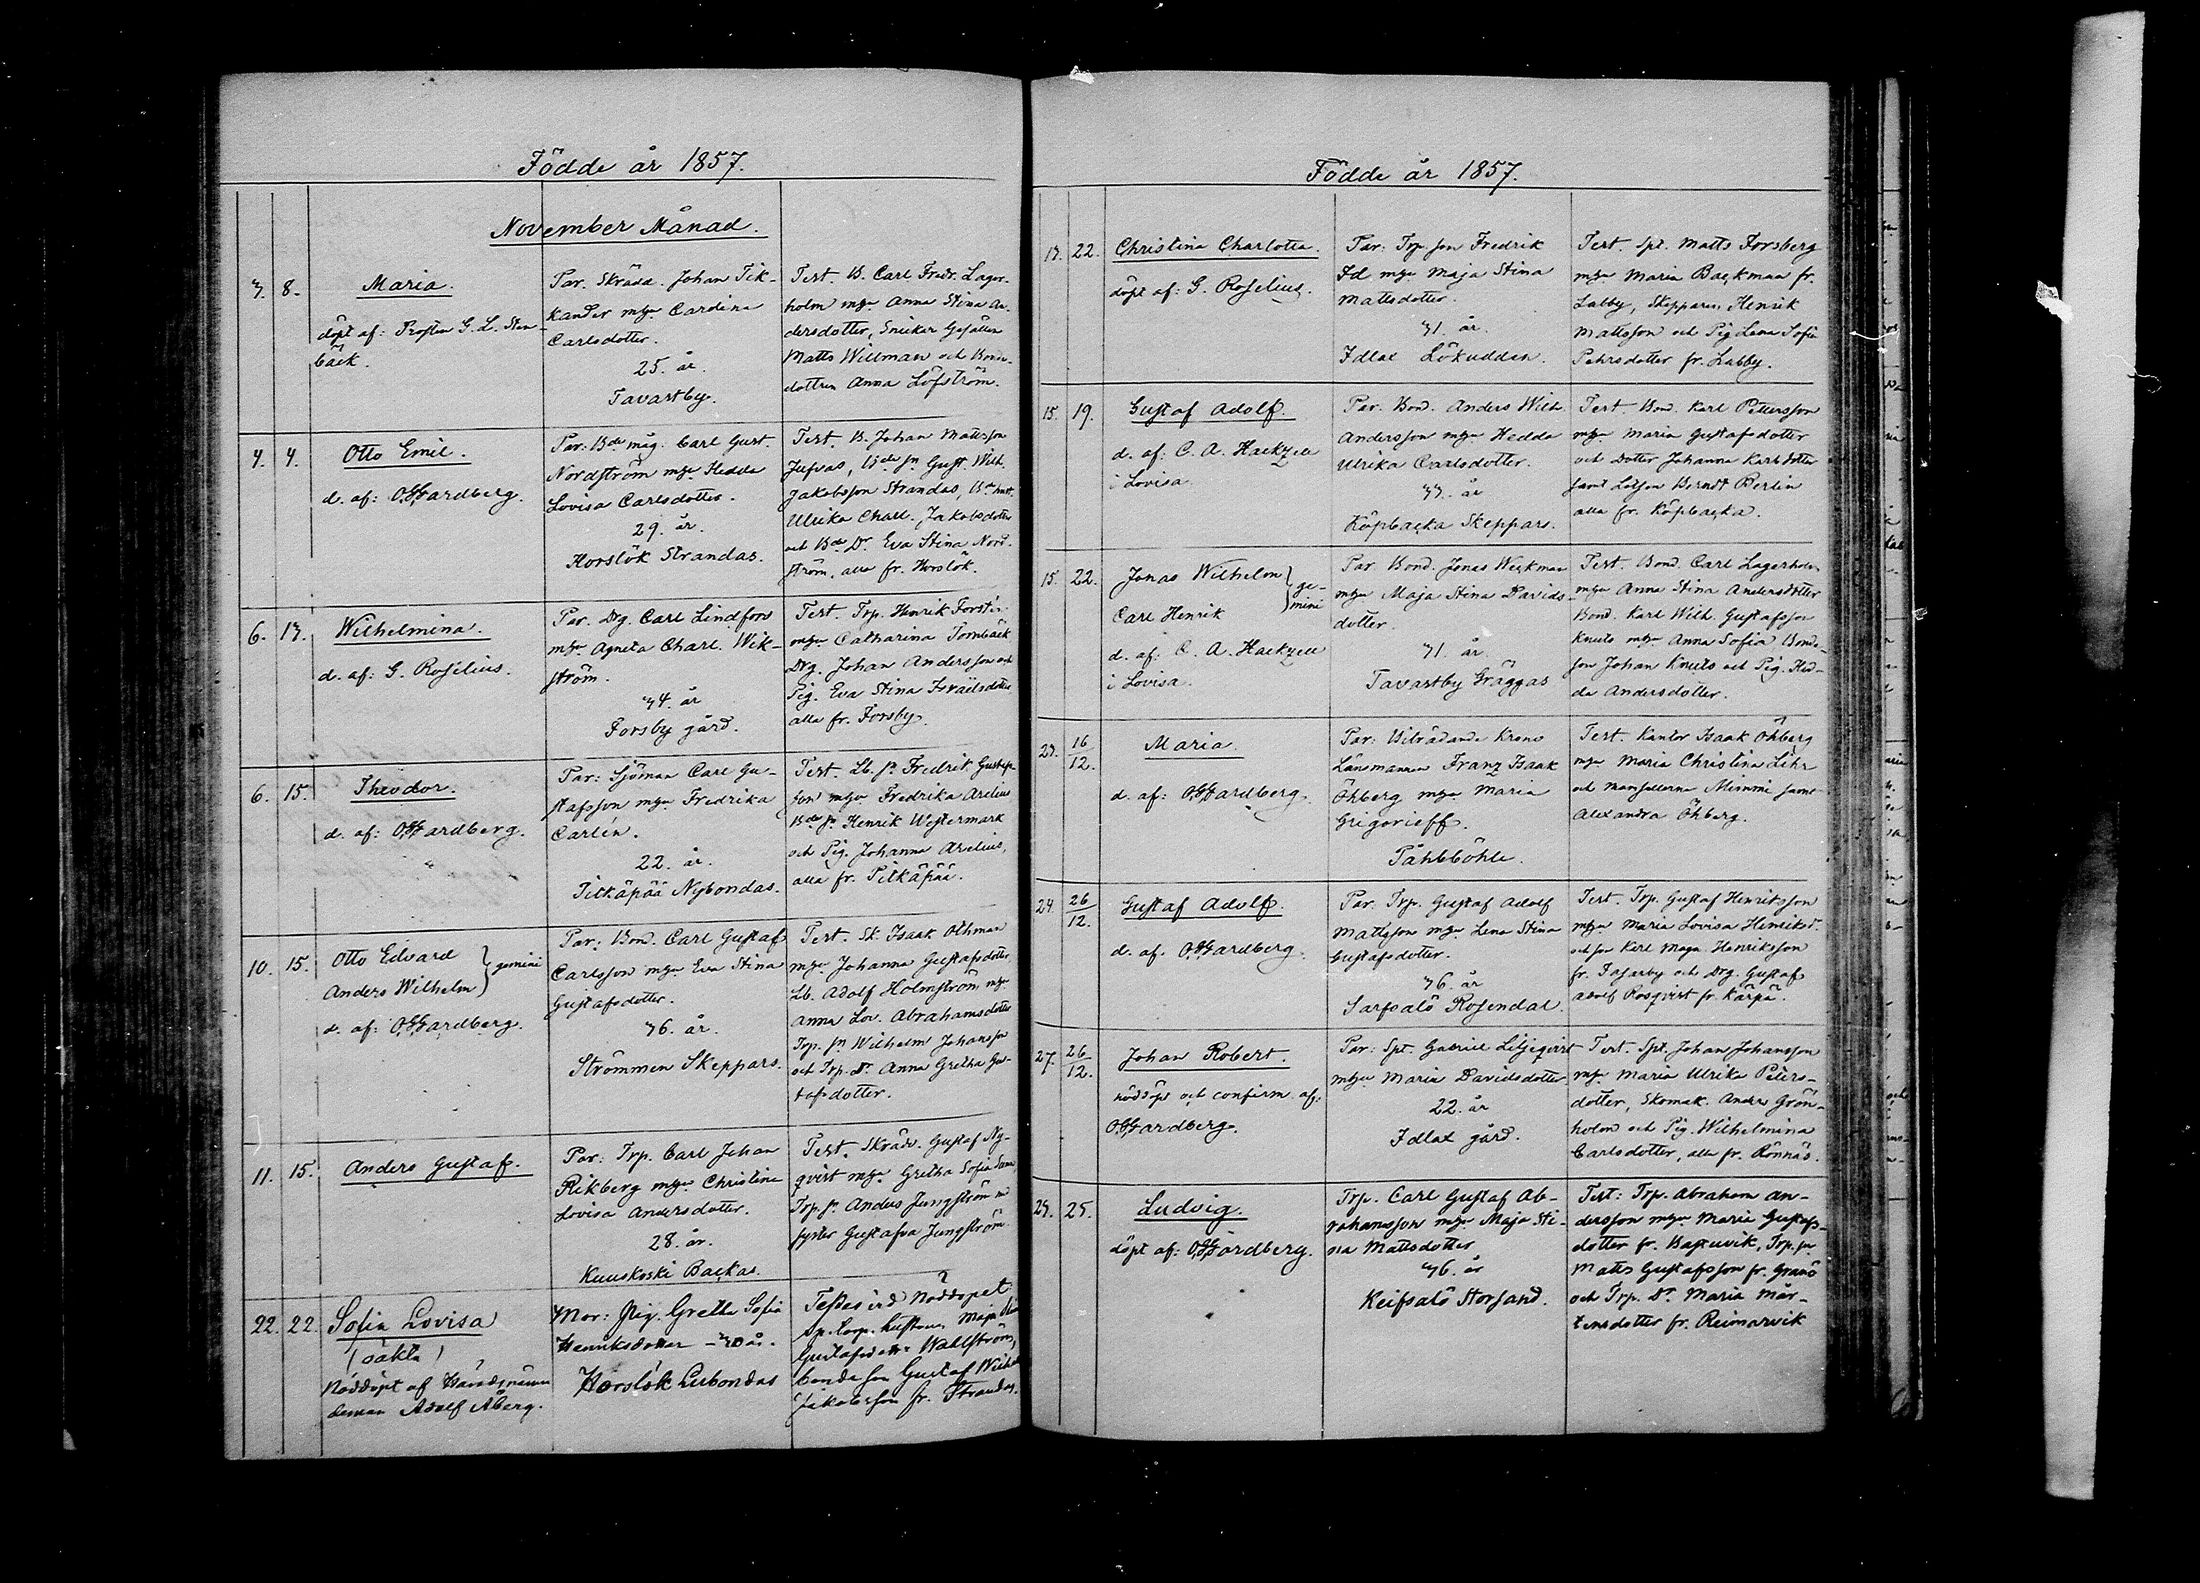 Födde år 1857.
November Månad.
3. 8. Maria.
döpt af: Prosten G. L. Sten-
bäck.
Par. Skrädd. Johan Tik-
kander m/hu Carolina
Carlsdotter.
25. år.
Tavastby.
Test. B. Carl Fredr. Lager-
holm m/hu Anna Stina An-
dersdotter, Snickar Gesällen
Matts Willman och Bonde-
dottren Anna Löfström.
4. 4. Otto Emil.
d. af: O. Gardberg.
Par: Bde måg. Carl Gust.
Nordström m/hu Hedda
Lovisa Carlsdotter.
29. år.
Horslök Strandas.
Test. B. Johan Mattsson
Jufvas, Bde sn Gust. Wilh.
Jakobsson Strandas, Bde hust.
Ulrika Charl. Jakobsdotter
och Bde Dr. Eva Stina Nord-
ström, alla fr. Horslök.
6. 13. Wilhelmina.
d. af: G. Roselius.
Par. Drg. Carl Lindfors
m/hu Agneta Charl. Wik-
ström.
34. år
Forsby gård.
Test. Trp. Henrik Forstén
m/hu Catharina Tornbäck
Drg. Johan Andersson och
Pig. Eva Stina Israelsdotter
alla fr. Forsby.
6. 15. Theodor.
d. af: O. Gardberg.
Par: Sjöman Carl Gu-
stafsson m/hu Fredrika
Carlén.
22. år.
Pitkäpää Nybondas.
Test. Lb. sn Fredrik Gustafs-
son m/hu Fredrika Arelius
Bde sn Henrik Westermark
och Pig. Johanna Arelius,
alla fr. Pitkäpää.
10. 15. Otto Edvard
Anders Wilhelm } gemini
d. af: O. Gardberg.
Par: Bond. Carl Gustaf
Carlsson m/hu Eva Stina
Gustafsdotter.
36. år.
Strömmen Skeppars.
Test. Sk. Isaak Othman
m/hu Johanna Gustafsdotter,
Lb. Adolf Holmström m/hu
Anna Lov. Abrahamsdotter
Trp. sn Wilhelm Johansson
och Trp. Dr. Anna Gretha Gus-
tafsdotter.
11. 15. Anders Gustaf.
Par: Trp. Carl Johan
Rikberg m/hu Christina
Lovisa Andersdotter.
28. år.
Kuuskoski Backas.
Test. Skrädd. Gustaf Ny-
qvist m/hu Gretha Sofia
Trp. sn Anders Jungström
syster Gustafva Jungström
22. 22. Sofia Lovisa
(oäkta)
Nöddöpt af
Adolf Åberg.
Mor: Pig. Gretha Sofia
Henriksdotter – 30 år.
Horslök Lubondas
Testes vid Nöddopet
Maja
Gustafsdotter Wahlström,
bonde son Gustaf Wilh.
Jakobsson fr. Strandas.
Födde år 1857.
13. 22. Christina Charlotta.
döpt af: G. Roselius.
Par: Trp. son Fredrik
Id m/hu Maja Stina
Mattsdotter.
31. år.
Idlax Lökudden.
Test. Spt. Matts Forsberg
m/hu Maria Backman fr.
Labby, Skepparen Henrik
Mattsson och Pig Lena Sofia
Pehrsdotter fr. Labby.
15. 19. Gustaf Adolf.
d. af: C. A. Hackzell
i Lovisa.
Par. Bond. Anders Wilh.
Andersson m/hu Hedda
Ulrika Carlsdotter.
33. år
Köpbacka Skeppars.
Test. Bond. Karl Pettersson
m/hu Maria Gustafsdotter
och Dotter Johanna Karlsdotter
samt Lotsen Berndt Berlin
alla fr. Köpbacka.
15. 22. Jonas Wilhelm
Carl Henrik } ge-
mini
d. af: C. A. Hackzell
i Lovisa.
Par Bond. Jonas Weckman
m/hu Maja Stina Davids-
dotter.
31. år
Tavastby Gräggas
Test. Bond. Carl Lagerholm
m/hu Anna Stina Andersdotter
Bond. Karl Wilh. Gustafsson
Knuts m/hu Anna Sofia Bonde-
son Johan Knuts och Pig. Hed-
da Andersdotter.
23. 16/12. Maria.
d. af: O. Gardberg.
Par: Biträdande Krono
Länsmannen Franz Isaak
Öhberg m/hu Maria
Grigorieff.
Påhlböhle.
Test. Kantor Isaak Öhberg
m/hu Maria Christina Lihr
och Mamsellerna Mimmi samt
Alexandra Öhberg.
24. 26/12. Gustaf Adolf.
d. af: O. Gardberg.
Par. Trp. Gustaf Adolf
Mattsson m/hu Lena Stina
Gustafsdotter.
36. år
Sarfsalö Rosendal.
Test. Trp. Gustaf Henriksson
m/hu Maria Lovisa Henriksd.
Henriksson
fr. Fasarby och Drg. Gustaf
Adolf Rosqvist fr. Kärpä.
27. 26/12. Johan Robert.
nöddöpt och confirm. af:
O. Gardberg.
Par: Spt. Gabriel Liljeqvist
m/hu Maria Davidsdotter
22. år
Idlax gård.
Test. Spt. Johan Johansson
m/hu Maria Ulrika Peters-
dotter, Skomak. Anders Grön-
holm och Pig. Wilhelmina
Carlsdotter, alla fr. Rönnäs.
25. 25. Ludvig.
döpt af: O. Gardberg.
Trp. Carl Gustaf Ab-
rahamsson m/hu Maja Sti-
na Mattsdotter
36. år
Keifsalö Storsand.
Test: Trp. Abraham An-
dersson m/hu Maria Gustafs-
dotter fr. Bastuvik, Trp. sn
Matts Gustafsson fr. Granö
och Trp. Dr. Maria Mår-
tensdotter fr. Reimarvik